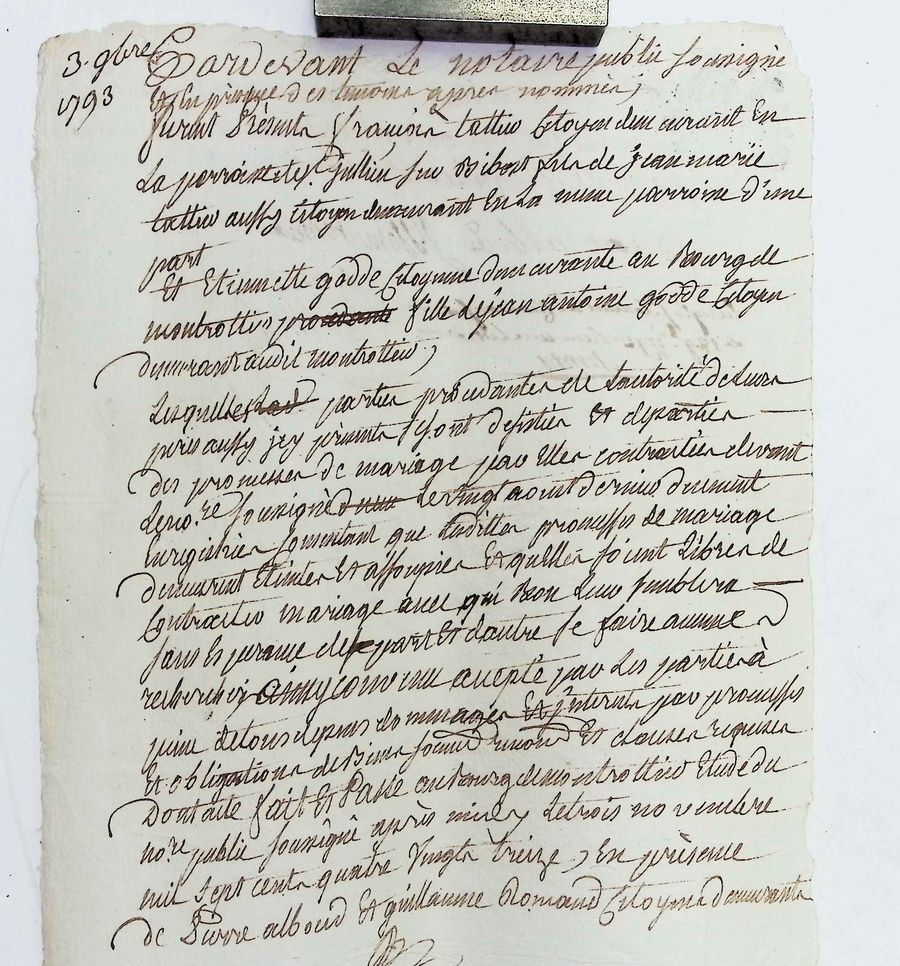 3 9bre
1793
Pardevant Le notaire public soussigné
Et En présence des temoins apres nommés,
furent Présents françois tattiu Citoyen demeurant En
La parroisse de St jullien sur Bibost fils de jean marie
tattiu aussy citoyen demeurant En La meme parroisse d'une
part
Et Etiennette godde Citoyenne demeurante au Bourg de
montrottier procedante fille de jean antoine godde Citoyen
demeurant audit montrottier,
Lesquelles parties procedantes de Lautorité de Leurs
peres aussy icy présents se sont desistées Et departies
des promesses de mariage par Elles contractées devant
Le nore soussigné Le vingt aout dernier duement
Enregistrées consentant que Lesdittes promesses de mariage
demeurent Eteintes Et assoupies Et quelles soient Libres de
Contracter mariage avec qui Bon Leur semblera
sans Esperance de part Et dautre se faire aucune
recherche, ainsy convenu accepté par Les parties à
peine de tous depens dommages Et interets par promesses
Et obligations de Biens soumis renond Et clauses requises
Dont acte fait Et Passé au Bourg de montrottier Etude du
nore public soussigné après midy Le trois novembre
mil sept cents quatre Vingts treize, En présence
de Pierre alboud Et guillaume Romand Citoyens demeurants